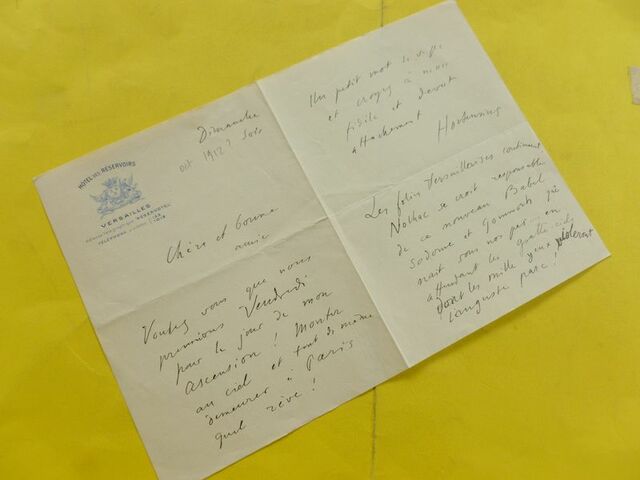 Dimanche
oct 1912? Soir
HOTEL DES RÉSERVOIRS
VERSAILLES
Chère et bonne
amie
Voulez vous que nous
prenions Vendredi
pour le jour de mon
ascension! Monter
au ciel et tout de même
demeurer à Paris
quel rêve!
Un petit mot le suffit
et croyez à mon
fidèle et dévoué
attachement
Les folies Versaillaises continuent
Nolhac se croit responsable
de ce nouveau Babel
Sodome et Gomorrhe
nait sous nos pas... en
attendant les gratte-ciels
dont les mille yeux violeront
l'auguste parc!